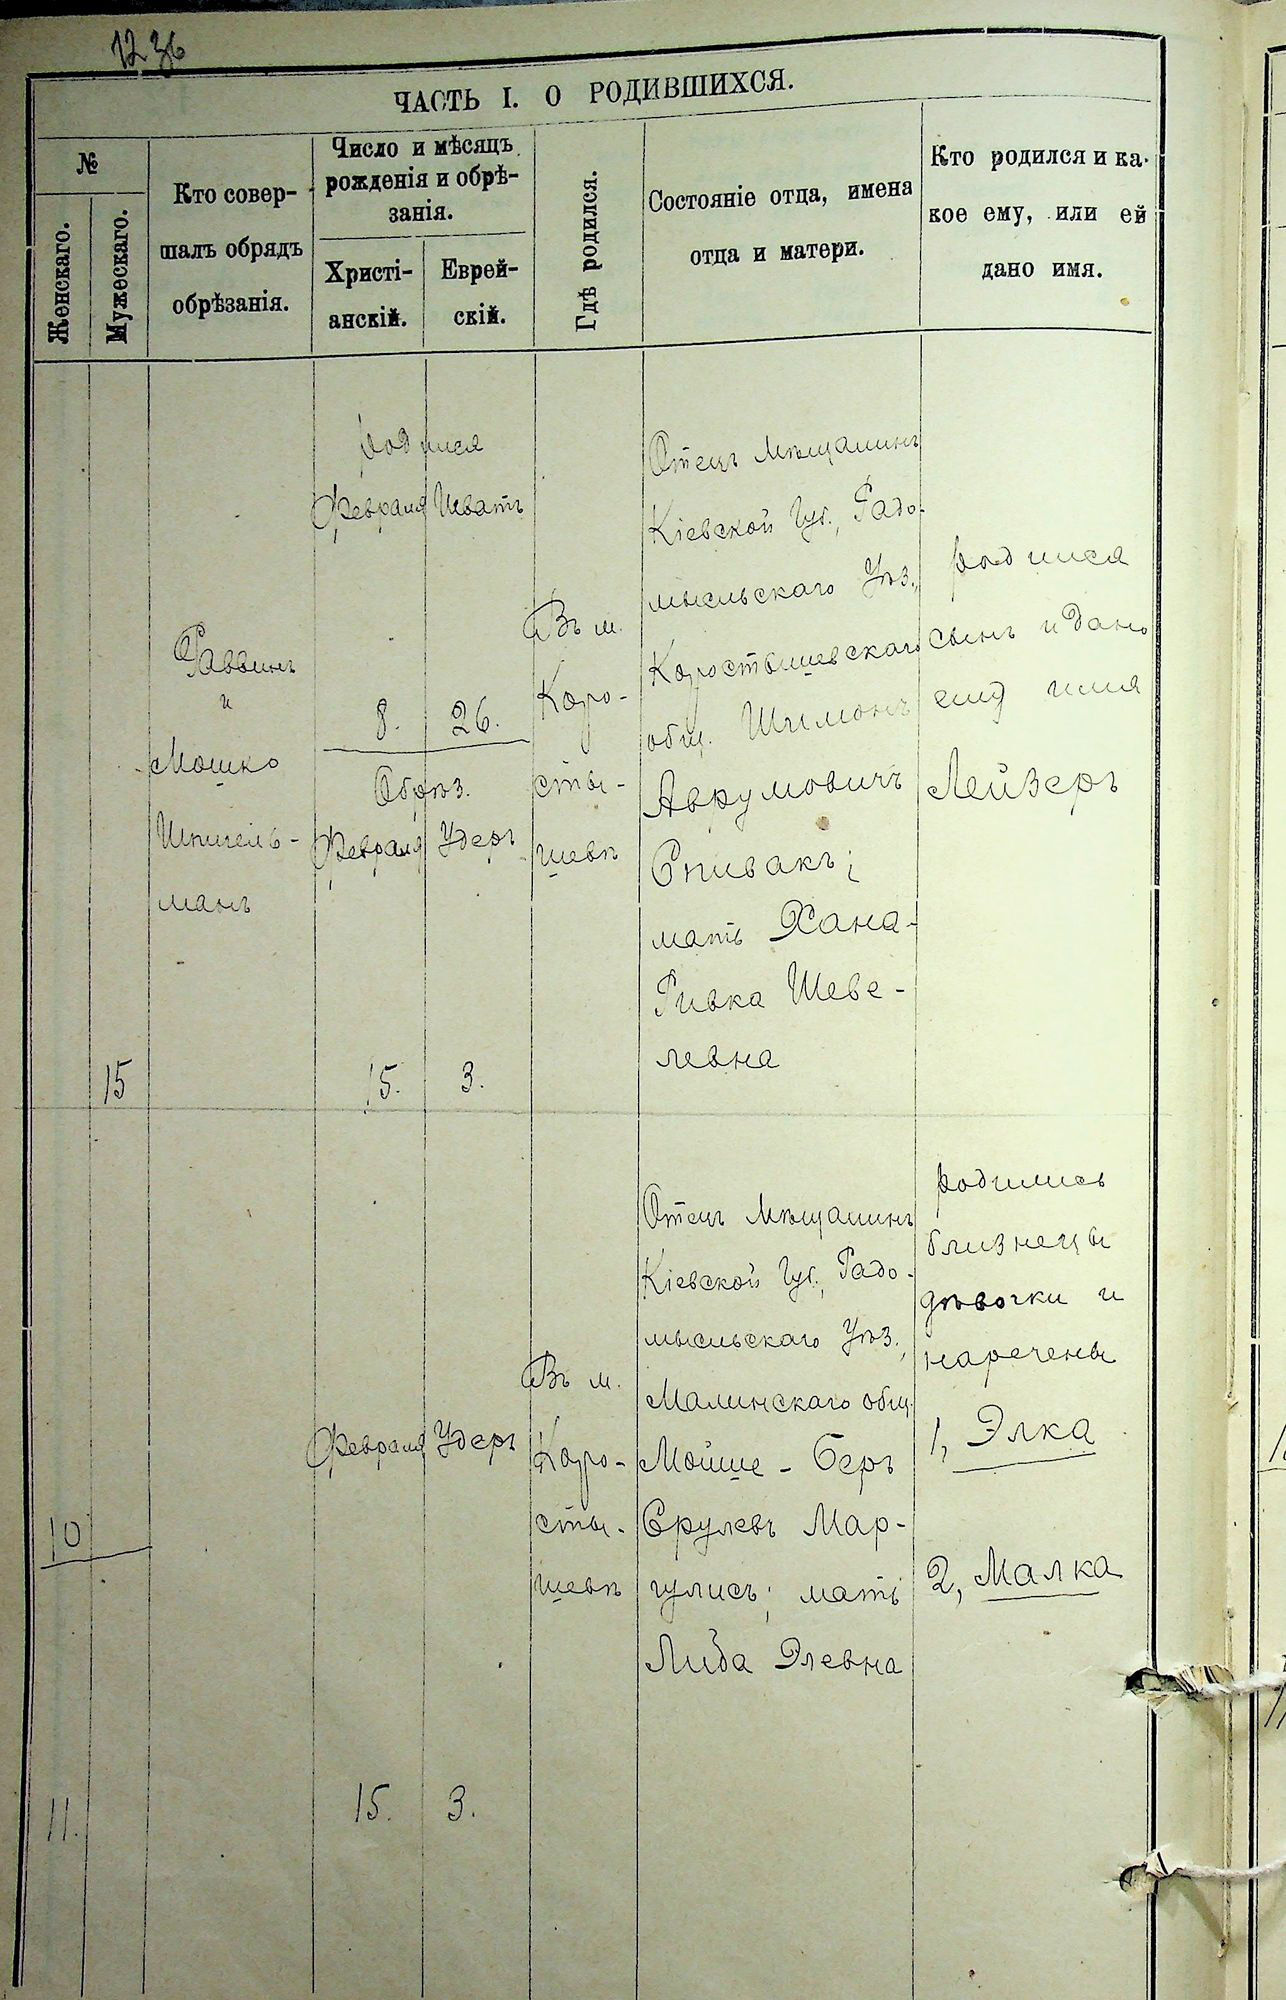 1236
ЧАСТЬ I. О РОДИВШИХСЯ.
№
Женскаго.
Мужескаго.
Кто совер-
шалъ обрядъ
обрѣзанія.
Число и мѣсяцъ
рожденія и обрѣ-
занія.
Христі-
анскій.
Еврей-
скій.
Гдѣ родился.
Состояніе отца, имена
отца и матери.
Кто родился и ка-
кое ему, или ей
дано имя.
15
Раввинъ
и
Мошко
Шпигель-
манъ
родился
Февраля Шватъ
8. 26.
Обрѣз.
Февраля Удеръ
15. 3.
Въ м.
Коро-
сты-
шевѣ
Отецъ Мѣщанинъ
Кіевской Губ., Радо-
мысльскаго Уѣз.,
Коростышевскаго
общ. Шимонъ
Аврумовичъ
Спивакъ;
мать Хана-
Ривка Шеве-
левна
родился
сынъ и дано
ему имя
Лейзеръ
10
11.
Февраля Удеръ
15. 3.
Въ м.
Коро-
сты-
шевѣ
Отецъ Мѣщанинъ
Кіевской Губ., Радо-
мысльскаго Уѣз.,
Малинскаго общ.
Мойше - Беръ
Срулевъ Мар-
гулисъ; мать
Либа Элевна
родились
близнецы
дѣвочки и
наречены
1, Элка
2, Малка